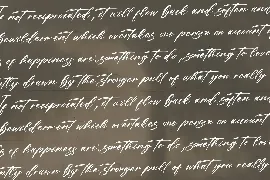 not reciprocated, it will flow back and soften and
bewilderment which overtakes one person on account
of happiness are: something to do, something to love
tly drawn by the stronger pull of what you really
not reciprocated, it will flow back and soften and
bewilderment which overtakes one person on account
of happiness are: something to do, something to love
tly drawn by the stronger pull of what you really